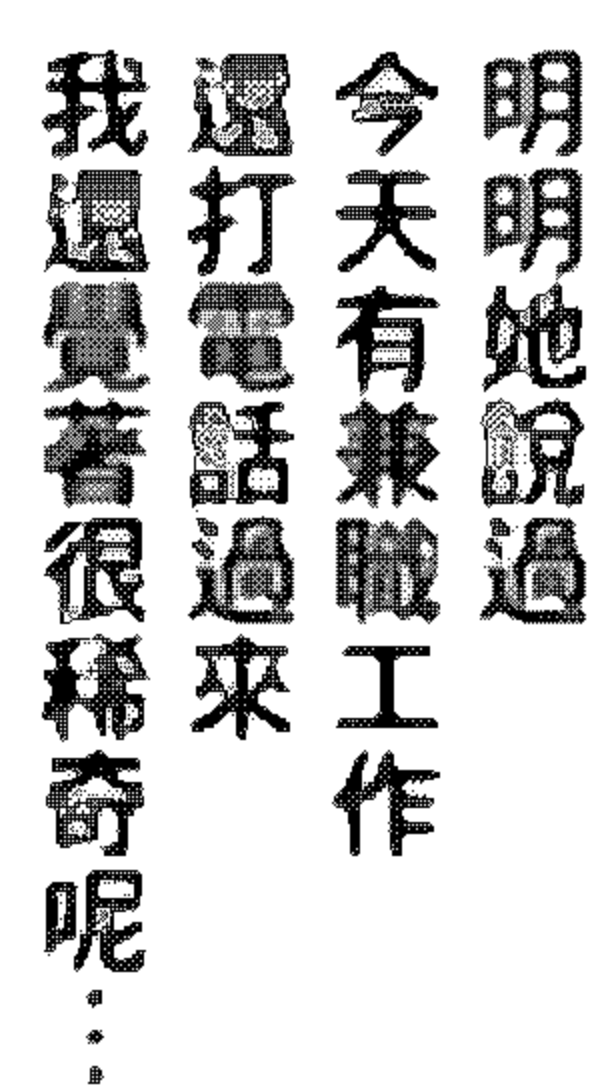 明明她說過
今天有兼職工作
還打電話過來
我還覺著很稀奇呢…